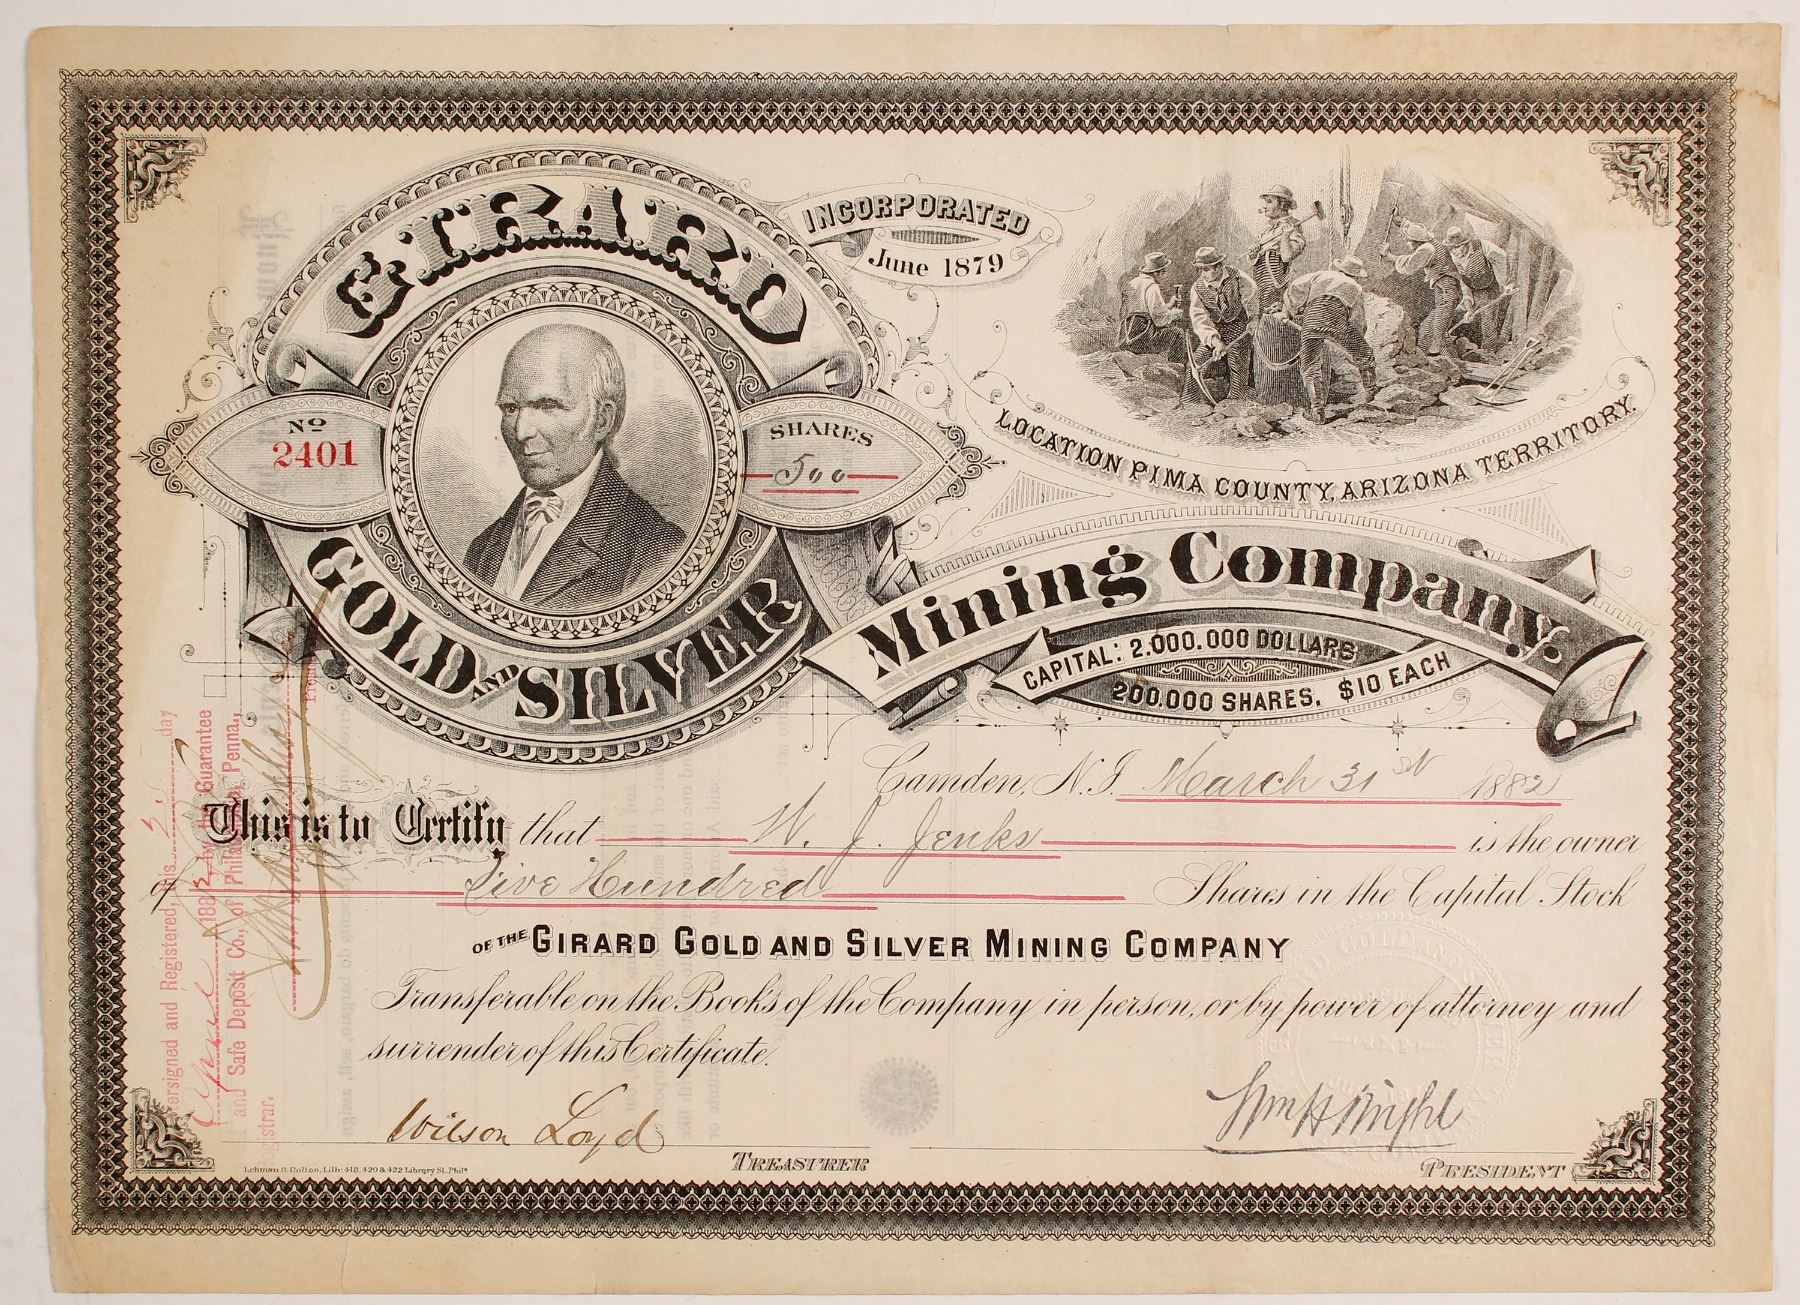 GIRARD
GOLD AND SILVER
Mining Company.
INCORPORATED
June 1879
No
2401
SHARES
500
LOCATION PIMA COUNTY, ARIZONA TERRITORY.
CAPITAL: 2.000.000 DOLLARS
200.000 SHARES, $10 EACH
Camden, N.J. March 31st 1882
This is to Certify that W. J. Jenks is the owner
of Five Hundred Shares in the Capital Stock
OF THE GIRARD GOLD AND SILVER MINING COMPANY
Transferable on the Books of the Company in person, or by power of attorney and
surrender of this Certificate.
Wilson Loyd
TREASURER
Wm H Wright
PRESIDENT
Lehman & Bolton, Lith: 418, 420 & 422 Library St. Phila
ersigned and Registered, this 3 day
April 1882 by the Guarantee
and Safe Deposit Co., of Philad'a, Penna.,
egistrar.